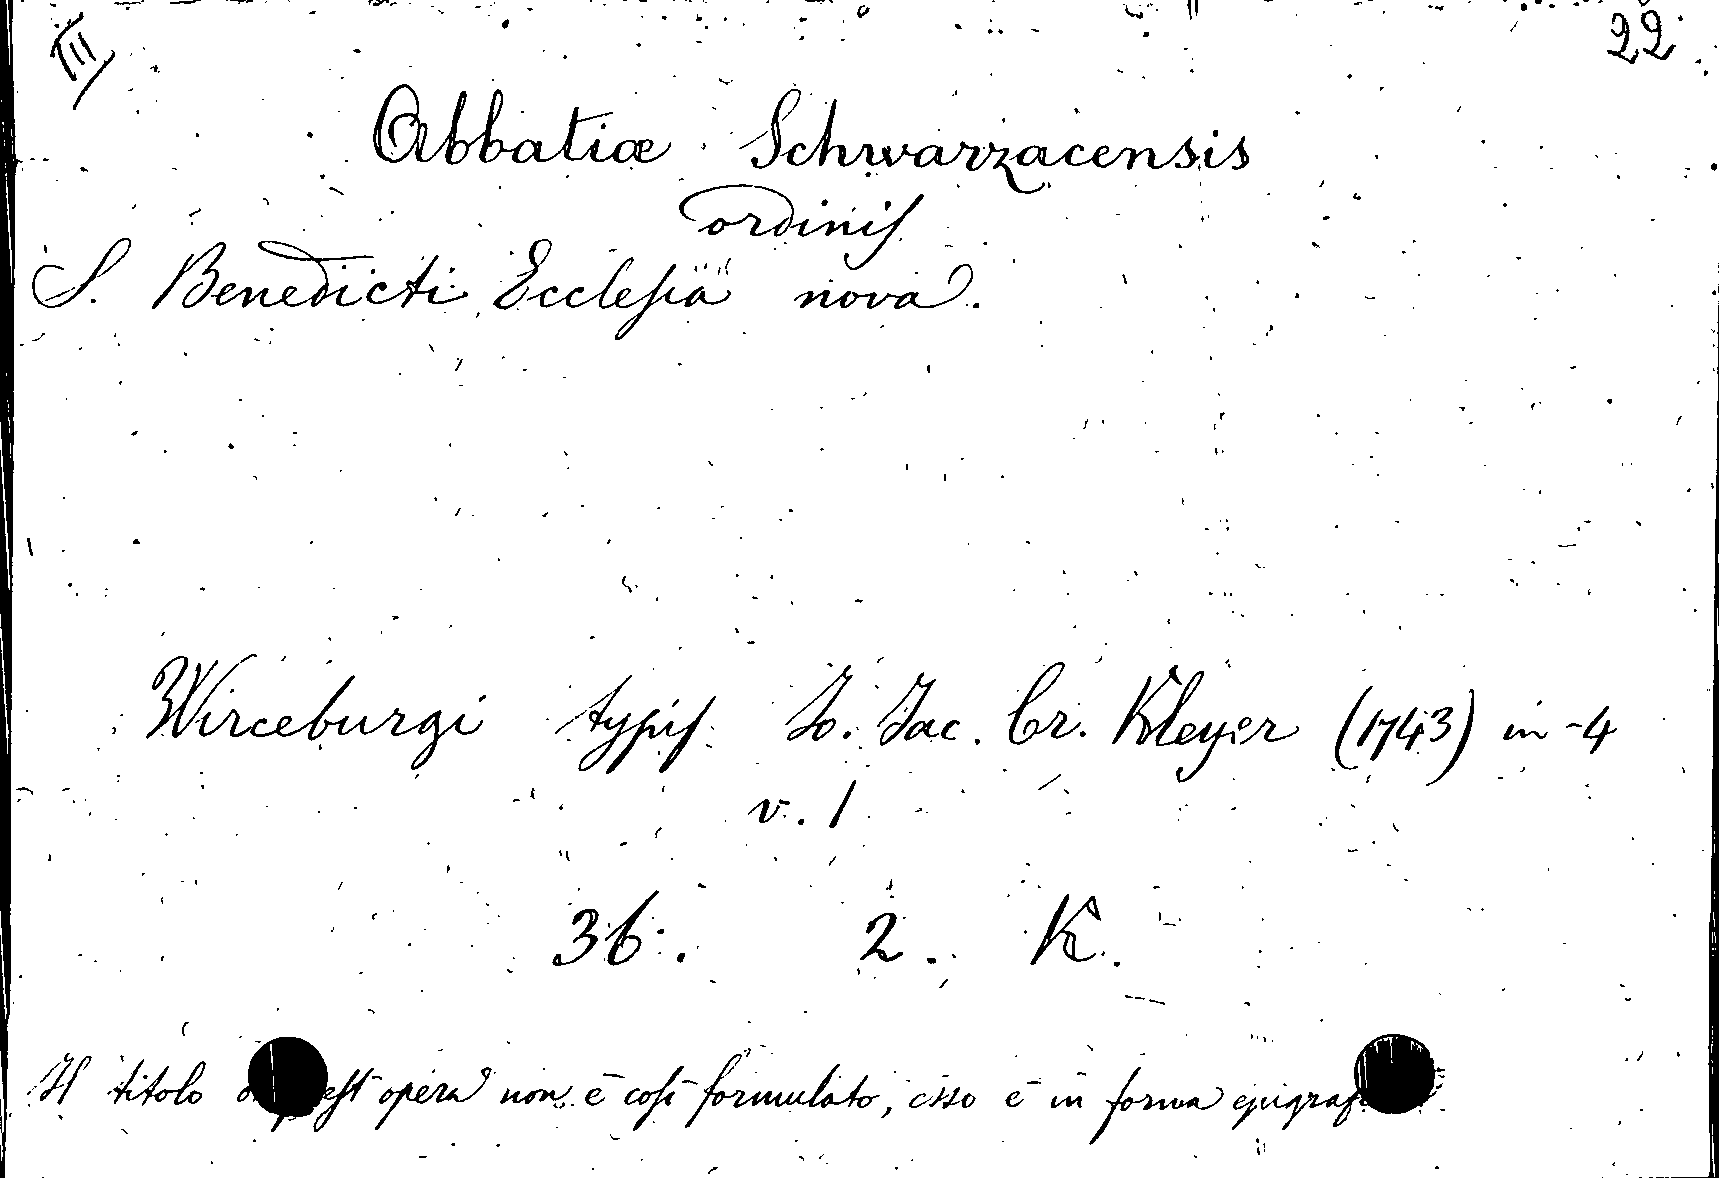 III 22
Abbatiæ Schwarzacensis
ordinis
S. Benedicti Ecclesia nova.
Wirceburgi typis Jo. Jac. Cr. Kleyer (1743) in-4
v. 1
36. 2. K.
Il titolo opera non è così formulato, esso è in forma